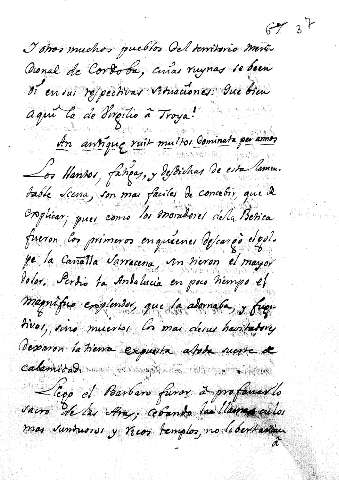 67 37
Y otros muchos pueblos del territorio meri-
dional de Cordoba, cuias ruynas se veen
oi en sus respectivas situaciones: Que bien
aqui lo de Virgilio â Troya!
An antique ruit multos Dominata per annos
Los llantos, fatigas, y desdichas de esta lamen-
table Scena, son mas faciles de concebir, que de
explicar; pues como los moradores de la Betica
fueron los primeros en quienes descargó el gol-
pe la Canalla Sarracena, sintieron el mayor
dolor. Perdio la Andalucia en poco tiempo el
magnifico esplendor, que la adornaba, y fugi-
tivos, sino muertos los mas de sus havitadores
dexaron la tierra expuesta a toda suerte de
calamidad.
Llegó el Barbaro furor â profanar lo
sacro de las Aras; cebando las llamas en los
mas suntuosos y ricos templos, no libertandose
a